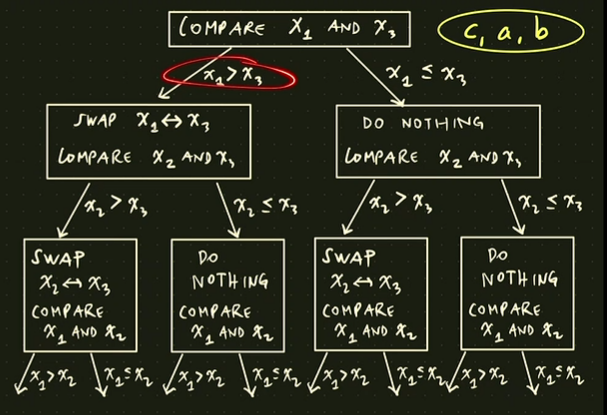 COMPARE X₁ AND X₃
c, a, b
x₁ > x₃
x₁ ≤ x₃
SWAP X₁ ↔ X₃
COMPARE X₂ AND X₃
DO NOTHING
COMPARE X₂ AND X₃
x₂ > x₃
x₂ ≤ x₃
x₂ > x₃
x₂ ≤ x₃
SWAP
X₂ ↔ X₃
COMPARE
X₁ AND X₂
DO
NOTHING
COMPARE
X₁ AND X₂
SWAP
X₂ ↔ X₃
COMPARE
X₁ AND X₂
DO
NOTHING
COMPARE
X₁ AND X₂
x₁ > x₂
x₁ ≤ x₂
x₁ > x₂
x₁ ≤ x₂
x₁ > x₂
x₁ ≤ x₂
x₁ > x₂
x₁ ≤ x₂